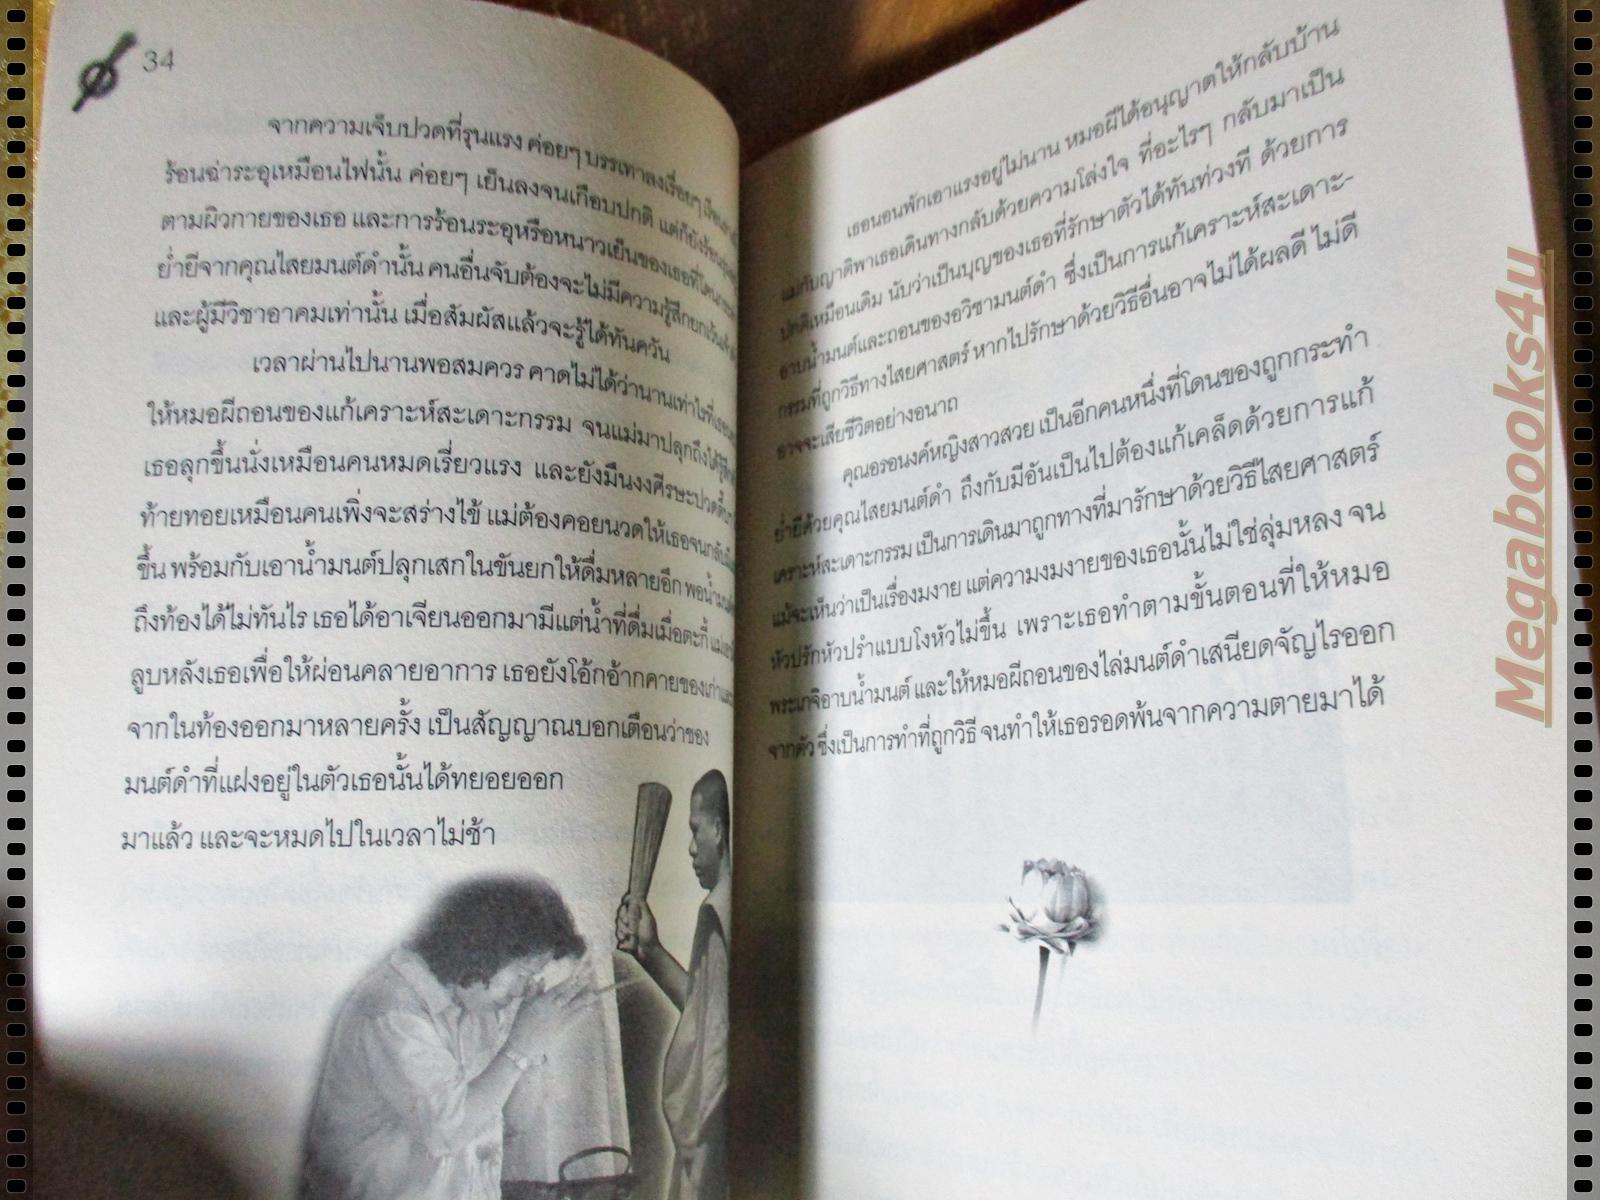 34
จากความเจ็บปวดที่รุนแรง ค่อยๆ บรรเทาลงเรื่อยๆ
ร้อนฉ่าระอุเหมือนไฟนั้น ค่อยๆ เย็นลงจนเกือบปกติ แต่ก็ยังร้อน
ตามผิวกายของเธอ และการร้อนระอุหรือหนาวเย็นของเธอที่โดน
ย่ำยีจากคุณไสยมนต์ดำนั้น คนอื่นจับต้องจะไม่มีความรู้สึกยกเว้น
และผู้มีวิชาอาคมเท่านั้น เมื่อสัมผัสแล้วจะรู้ได้ทันควัน
เวลาผ่านไปนานพอสมควร คาดไม่ได้ว่านานเท่าไรที่
ให้หมอผีถอนของแก้เคราะห์สะเดาะกรรม จนแม่มาปลุกถึงได้รู้สึก
เธอลุกขึ้นนั่งเหมือนคนหมดเรี่ยวแรง และยังมึนงงศีรษะปวดตื้บ
ท้ายทอยเหมือนคนเพิ่งจะสร่างไข้ แม่ต้องคอยนวดให้เธอจน
ขึ้น พร้อมกับเอาน้ำมนต์ปลุกเสกในขันยกให้ดื่มหลายอึก พอน้ำมนต์
ถึงท้องได้ไม่ทันไร เธอได้อาเจียนออกมามีแต่น้ำที่ดื่มเมื่อตะกี้
ลูบหลังเธอเพื่อให้ผ่อนคลายอาการ เธอยังโอ้กอ้ากคายของเก่า
จากในท้องออกมาหลายครั้ง เป็นสัญญาณบอกเตือนว่าของ
มนต์ดำที่แฝงอยู่ในตัวเธอนั้นได้ทยอยออก
มาแล้ว และจะหมดไปในเวลาไม่ช้า
เธอนอนพักเอาแรงอยู่ไม่นาน หมอผีได้อนุญาตให้กลับบ้าน
แม่กับญาติพาเธอเดินทางกลับด้วยความโล่งใจ ที่อะไรๆ กลับมาเป็น
ปกติเหมือนเดิม นับว่าเป็นบุญของเธอที่รักษาตัวได้ทันท่วงที ด้วยการ
อาบน้ำมนต์และถอนของอวิชามนต์ดำ ซึ่งเป็นการแก้เคราะห์สะเดาะ-
กรรมที่ถูกวิธีทางไสยศาสตร์ หากไปรักษาด้วยวิธีอื่นอาจไม่ได้ผลดี ไม่ดี
อาจจะเสียชีวิตอย่างอนาถ
คุณอรอนงค์หญิงสาวสวย เป็นอีกคนหนึ่งที่โดนของถูกกระทำ
ย่ำยีด้วยคุณไสยมนต์ดำ ถึงกับมีอันเป็นไปต้องแก้เคล็ดด้วยการแก้
เคราะห์สะเดาะกรรม เป็นการเดินมาถูกทางที่มารักษาด้วยวิธีไสยศาสตร์
แม้จะเห็นว่าเป็นเรื่องงมงาย แต่ความงมงายของเธอนั้นไม่ใช่ลุ่มหลง จน
หัวปรักหัวปรำแบบโงหัวไม่ขึ้น เพราะเธอทำตามขั้นตอนที่ให้หมอ
พระเกจิอาบน้ำมนต์ และให้หมอผีถอนของไล่มนต์ดำเสนียดจัญไรออก
จากตัว ซึ่งเป็นการทำที่ถูกวิธี จนทำให้เธอรอดพ้นจากความตายมาได้
Megabooks4u